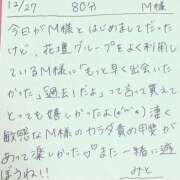 12/27 80分 M様
今日がM様とはじめましてだった
けど、花壇グループをよく利用し
ているM様に「もっと早く出会いた
かった」「過去1だよ」って言って貰えて
とっても嬉しかったよ(*^^*) 凄く
敏感なM様のカラダ責め甲斐が
あって楽しかった♡♡また一緒に遊
ぼうね!!
みと